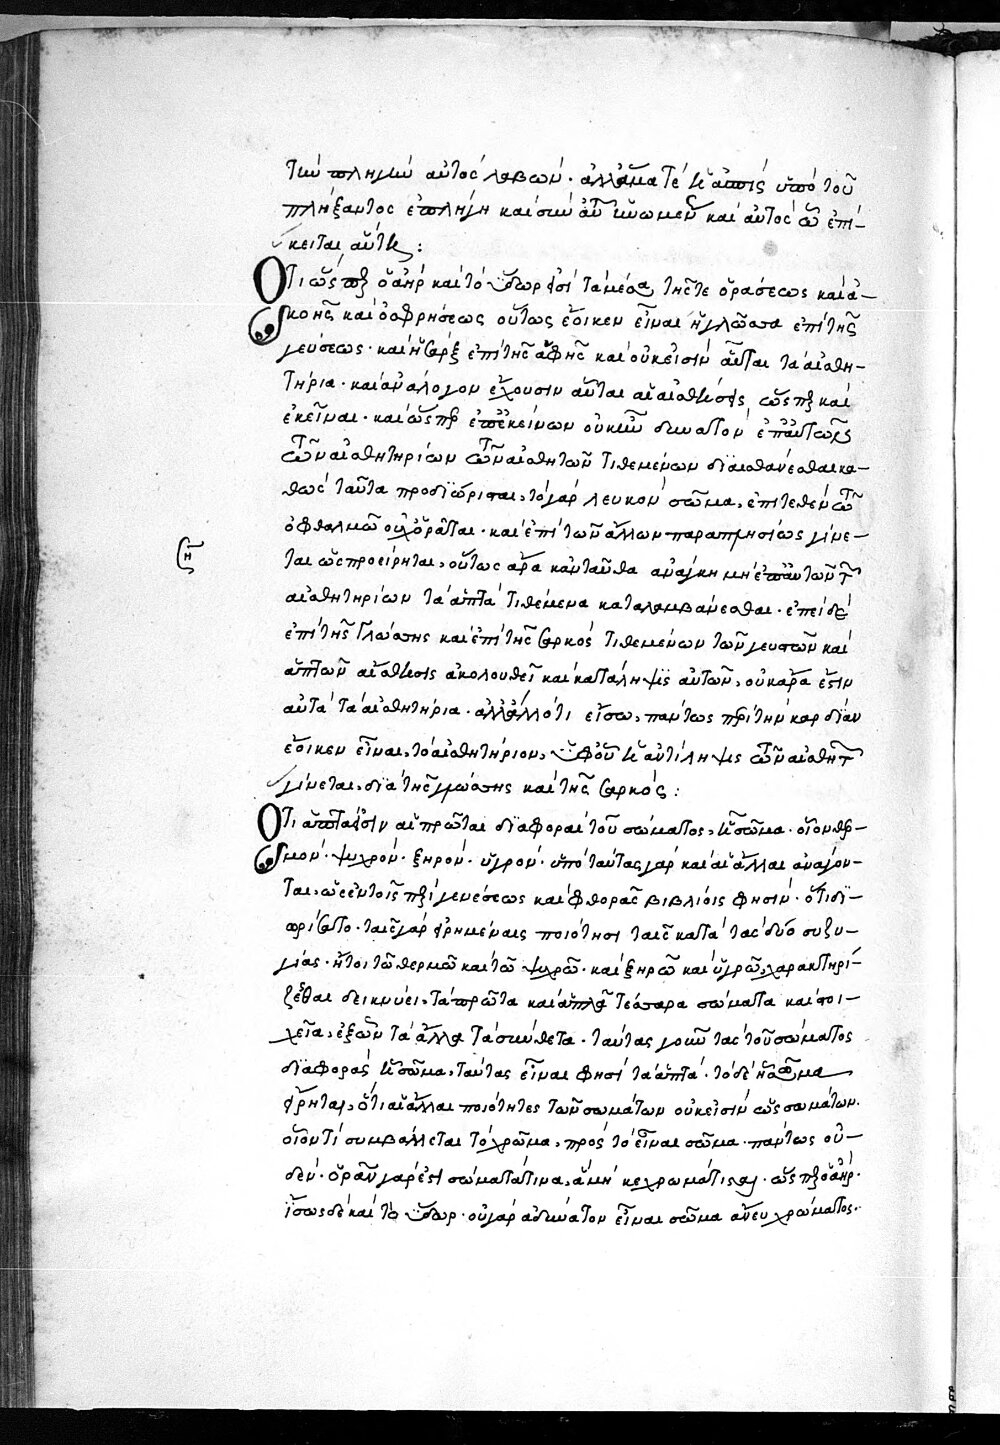 τὴν πληγὴν αὐτὸς λαβών· ἀλλ' ἅμα τὲ ἡ ἀσπὶς ὑπὸ τοῦ
πλήξαντος ἐπλήγη καὶ σὺν αὐτῇ καὶ αὐτὸς ᾧ ἐπί-
κειται αὕτη:
Ὅτι ὥσπερ ὁ ἀὴρ καὶ τὸ ὕδωρ εἰσὶ τὰ μέσα τῆς τε ὁράσεως καὶ ἀ-
κοῆς καὶ ὀσφρήσεως οὕτως ἔοικεν εἶναι ἡ γλῶσσα ἐπὶ τῆς
γεύσεως· καὶ ἡ σὰρξ ἐπὶ τῆς ἁφῆς καὶ οὐκ εἰσὶν αὗται τὰ αἰσθη-
τήρια· καὶ ἀνάλογον ἔχουσιν αὗται αἱ αἰσθήσεις ὥσπερ καὶ
ἐκεῖναι· καὶ ὥσπερ ἐπ' ἐκείνων οὐκ ἦν δυνατὸν ἐπ' αὐτῶν
τῶν αἰσθητηρίων τῶν αἰσθητῶν τιθεμένων διαισθάνεσθαι κα-
θὼς ταῦτα προδιώρισται, τὸ γὰρ λευκὸν σῶμα, ἐπιτεθὲν τῷ
ὀφθαλμῷ οὐχ ὁρᾶται· καὶ ἐπὶ τῶν ἄλλων παραπλησίως γίνε-
ται ὡς προείρηται, οὕτως ἄρα κἀνταῦθα ἀνάγκη μὴ ἐπ' αὐτῶν τῶν
αἰσθητηρίων τὰ ἁπτὰ τιθέμενα καταλαμβάνεσθαι· ἐπεὶ δὲ
ἐπὶ τῆς γλώσσης καὶ ἐπὶ τῆς σαρκὸς τιθεμένων τῶν γευστῶν καὶ
ἁπτῶν αἴσθησις ἀκολουθεῖ καὶ κατάληψις αὐτῶν, οὐκ ἄρα ἔστιν
αὐτὰ τὰ αἰσθητήρια· ἀλλ' ἄλλό τι εἴσω, πάντως περὶ τὴν καρδίαν
ἔοικεν εἶναι, τὸ αἰσθητήριον, ὑφ' οὗ ἡ ἀντίληψις τῶν αἰσθητῶν
γίνεται, διὰ τῆς γλώσσης καὶ τῆς σαρκός:
Ὅτι ἁπταί εἰσιν αἱ πρῶται διαφοραὶ τοῦ σώματος, ᾗ σῶμα· οἷον θερ-
μόν· ψυχρόν· ξηρόν· ὑγρόν· ὑπὸ ταύτας γὰρ καὶ αἱ ἄλλαι ἀνάγον-
ται, ὡς ἐν τοῖς περὶ γενέσεως καὶ φθορᾶς βιβλίοις φησίν· ὅτι δι-
ωρίσατο· ταῖς γὰρ εἰρημέναις ποιότησι ταῖς κατὰ τὰς δύο συζυ-
γίας· ἤτοι τῷ θερμῷ καὶ τῷ ψυχρῷ· καὶ ξηρῷ καὶ ὑγρῷ, χαρακτηρί-
ζεσθαι δεικνύει, τὰ πρῶτα καὶ ἁπλᾶ τέσσαρα σώματα καὶ στοι-
χεῖα, ἐξ ὧν τὰ ἄλλα τὰ σύνθετα· ταύτας γοῦν τὰς τοῦ σώματος
διαφορὰς ᾗ σῶμα, ταύτας εἶναι φησὶ τὰ ἁπτά· τὸ δὲ ᾗ σῶμα
εἴρηται, ὅτι αἱ ἄλλαι ποιότητες τῶν σωμάτων οὐκ εἰσὶν ὡς σωμάτων·
οἷον τί συμβάλλεται τὸ χρῶμα, πρὸς τὸ εἶναι σῶμα· πάντως οὐ-
δέν· ὁρᾶν γάρ ἐστι σώματά τινα, ἃ μὴ κεχρωμάτισται· ὥσπερ ὁ ἀήρ·
ἴσως δὲ καὶ τὸ ὕδωρ· οὐ γὰρ ἀδύνατον εἶναι σῶμα ἄνευ χρώματος·